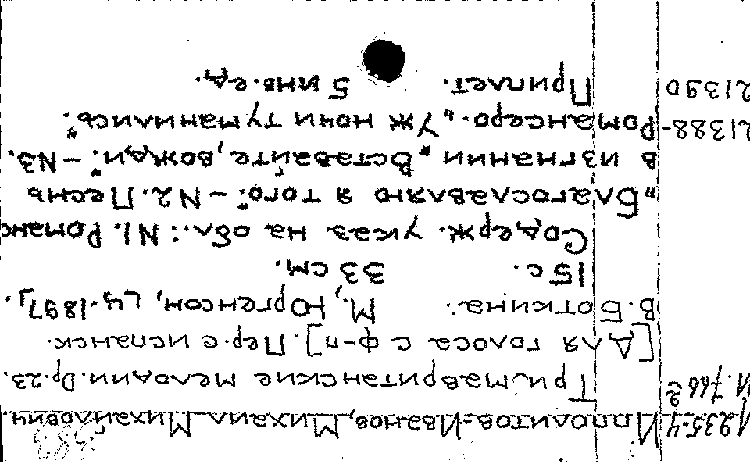 N235-4 Ипполитов-Иванов, Михаил Михайлович.
Три мавританские мелодии. Op. 23.
[Для голоса с ф-п]. Пер. с испанск.
В. Боткина. М., Юргенсон, ц. 1897].
15 с. 33 см.
Содерж. указ. на обл.: N1. Романс
„Благославляю я того“. – N2. Песнь
в изгнании „Вставайте, вожди“. – N3.
21388- Романсеро. „Уж ночи туманились“.
21390 Приплет. 5 инв. ед.